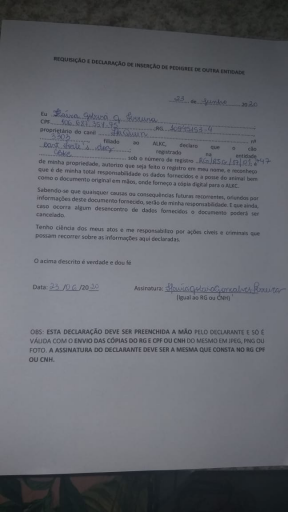 REQUISIÇÃO E DECLARAÇÃO DE INSERÇÃO DE PEDIGREE DE OUTRA ENTIDADE
de de 20
Eu
CPF RG
proprietário do canil nº
filiado ao ALKC, declaro que o cão
registrado na entidade
sob o número de registro
de minha propriedade, autorizo que seja feito o registro em meu nome, e reconheço
que é de minha total responsabilidade os dados fornecidos e a posse do animal bem
como o documento original em mãos, onde forneço a cópia digital para o ALKC.
Sabendo se que quaisquer causas ou consequências futuras recorrentes, oriundos por
informações deste documento fornecido, serão de minha responsabilidade. E que ainda,
caso ocorra algum desencontro de dados fornecidos o documento poderá ser
cancelado.
Tenho ciência dos meus atos e me responsabilizo por ações cíveis e criminais que
possam recorrer sobre as informações aqui declaradas.
O acima descrito é verdade e dou fé
Data: Assinatura:
(Igual ao RG ou CNH)
OBS: ESTA DECLARAÇÃO DEVE SER PREENCHIDA A MÃO PELO DECLARANTE E SÓ É
VÁLIDA COM O ENVIO DAS CÓPIAS DO RG E CPF OU CNH DO MESMO EM JPEG, PNG OU
FOTO. A ASSINATURA DO DECLARANTE DEVE SER A MESMA QUE CONSTA NO RG CPF
OU CNH.